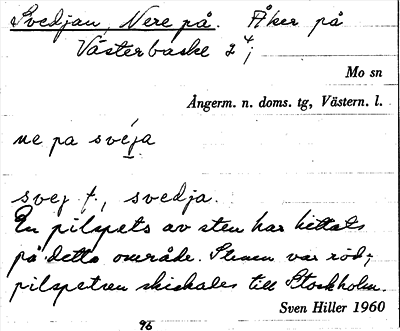 Svedjan, Nere på. Åker på
Västerbaske 2 4
Mo sn
Ångerm. n. doms. tg, Västern. l.
ne pa svéja
svej f., svedja.
En pilspets av sten har hittats
på detta område. Stenen var röd;
pilspetsen skickades till Stockholm.
Sven Hiller 1960
96